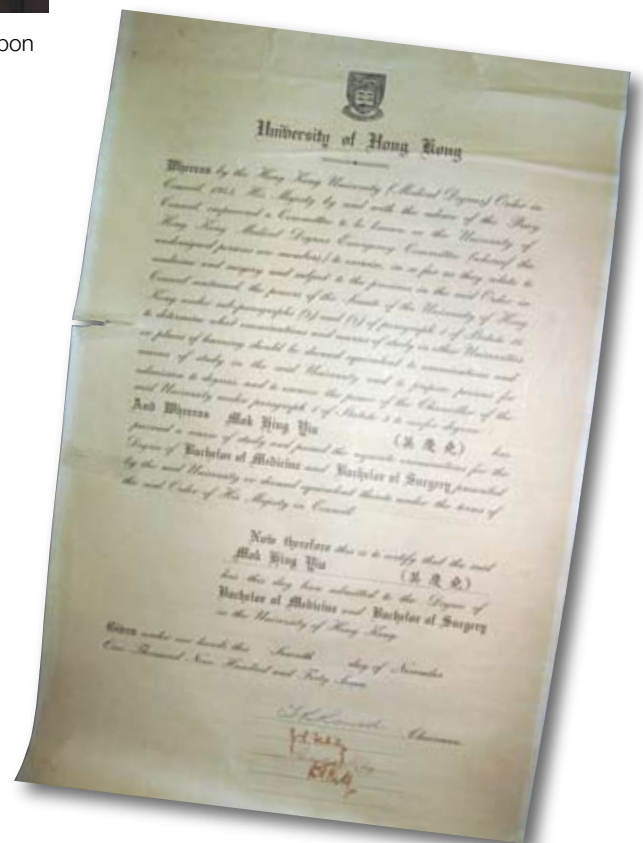 pon
University of Hong Kong
Whereas by the Hong Kong University (Medical Degrees) Order in
Council, His Majesty by and with the advice of the Privy
Council empowered a Committee to be known as the University of
Hong Kong Medical Degrees Emergency Committee (whereof the
undersigned persons are members) to exercise, in so far as they relate to
medicine and surgery and subject to the provisions in the said Order in
Council contained, the powers of the Senate of the University of Hong
Kong under sub-paragraphs and of paragraph of Statute
to determine what examinations and courses of study in other Universities
or places of learning should be deemed equivalent to examinations and
courses of study in the said University and to propose persons for
admission to degrees, and to exercise the power of the Chancellor of the
said University under paragraph of Statute to confer degrees
And Whereas Mok Hing Yiu has
pursued a course of study and passed the requisite examinations for the
Degree of Bachelor of Medicine and Bachelor of Surgery presented
by the said University or deemed equivalent thereto under the terms of
the said Order of His Majesty in Council
Now therefore this is to certify that the said
Mok Hing Yiu
has this day been admitted to the Degree of
Bachelor of Medicine and Bachelor of Surgery
in the University of Hong Kong
Given under our hands this day of November
One Thousand Nine Hundred and Forty
Chairman